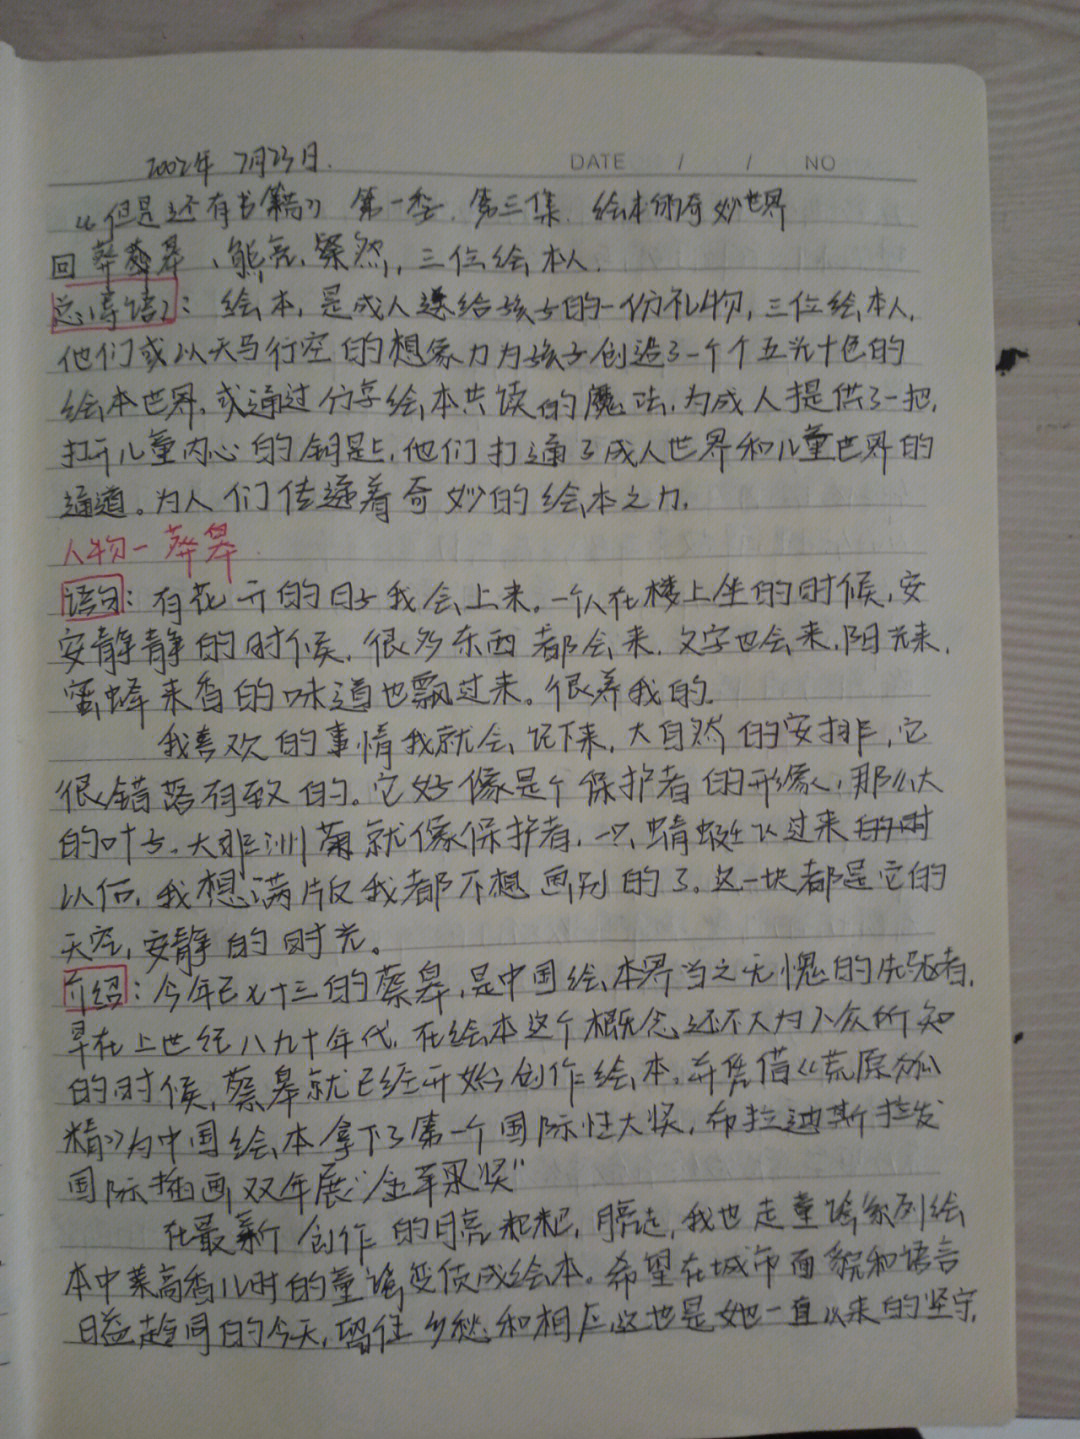 2002年 7月23日.
DATE / / NO
《但是还有书籍》 第一季. 第三集. 绘本的奇妙世界
回 蔡皋、熊亮、粲然, 三位绘本人.
总(导语): 绘本, 是成人送给孩子的一份礼物, 三位绘本人,
他们或以天马行空的想象力为孩子创造了一个个五光十色的
绘本世界, 或通过分享绘本共读的魔法, 为成人提供了一把,
打开儿童内心的钥匙, 他们打通了成人世界和儿童世界的
通道。为人们传递着奇妙的绘本之力.
人物一 蔡皋.
语句: 有花开的日子我会上来。一个人在楼上坐的时候, 安
安静静的时候, 很多东西都会来. 文字也会来, 阳光来,
蜜蜂来香的味道也飘过来。很养我的.
我喜欢的事情我就会记下来, 大自然的安排, 它
很错落有致的。它好像是个保护者的形象, 那么大
的叶子. 大非洲菊就像保护者, 一只蜻蜓以过来的时
以后, 我想满版我都不想画别的了。这一块都是它的
天空, 安静的时光。
介绍: 今年已七十三的蔡皋, 是中国绘本界当之无愧的先驱者,
早在上世纪八九十年代, 在绘本这个概念还不大为人众所知
的时候, 蔡皋就已经开始创作绘本, 并凭借《荒原狐
精》为中国绘本拿下了第一个国际性大奖, 布拉迪斯拉发
国际插画双年展"金苹果奖"
在最新创作的月亮粑粑, 月亮走, 我也走童谣系列绘
本中蔡高香儿时的童谣变成成绘本。希望在城市面貌和语言
日益趋同的今天, 留住乡愁和相应这也是她一直以来的坚守,